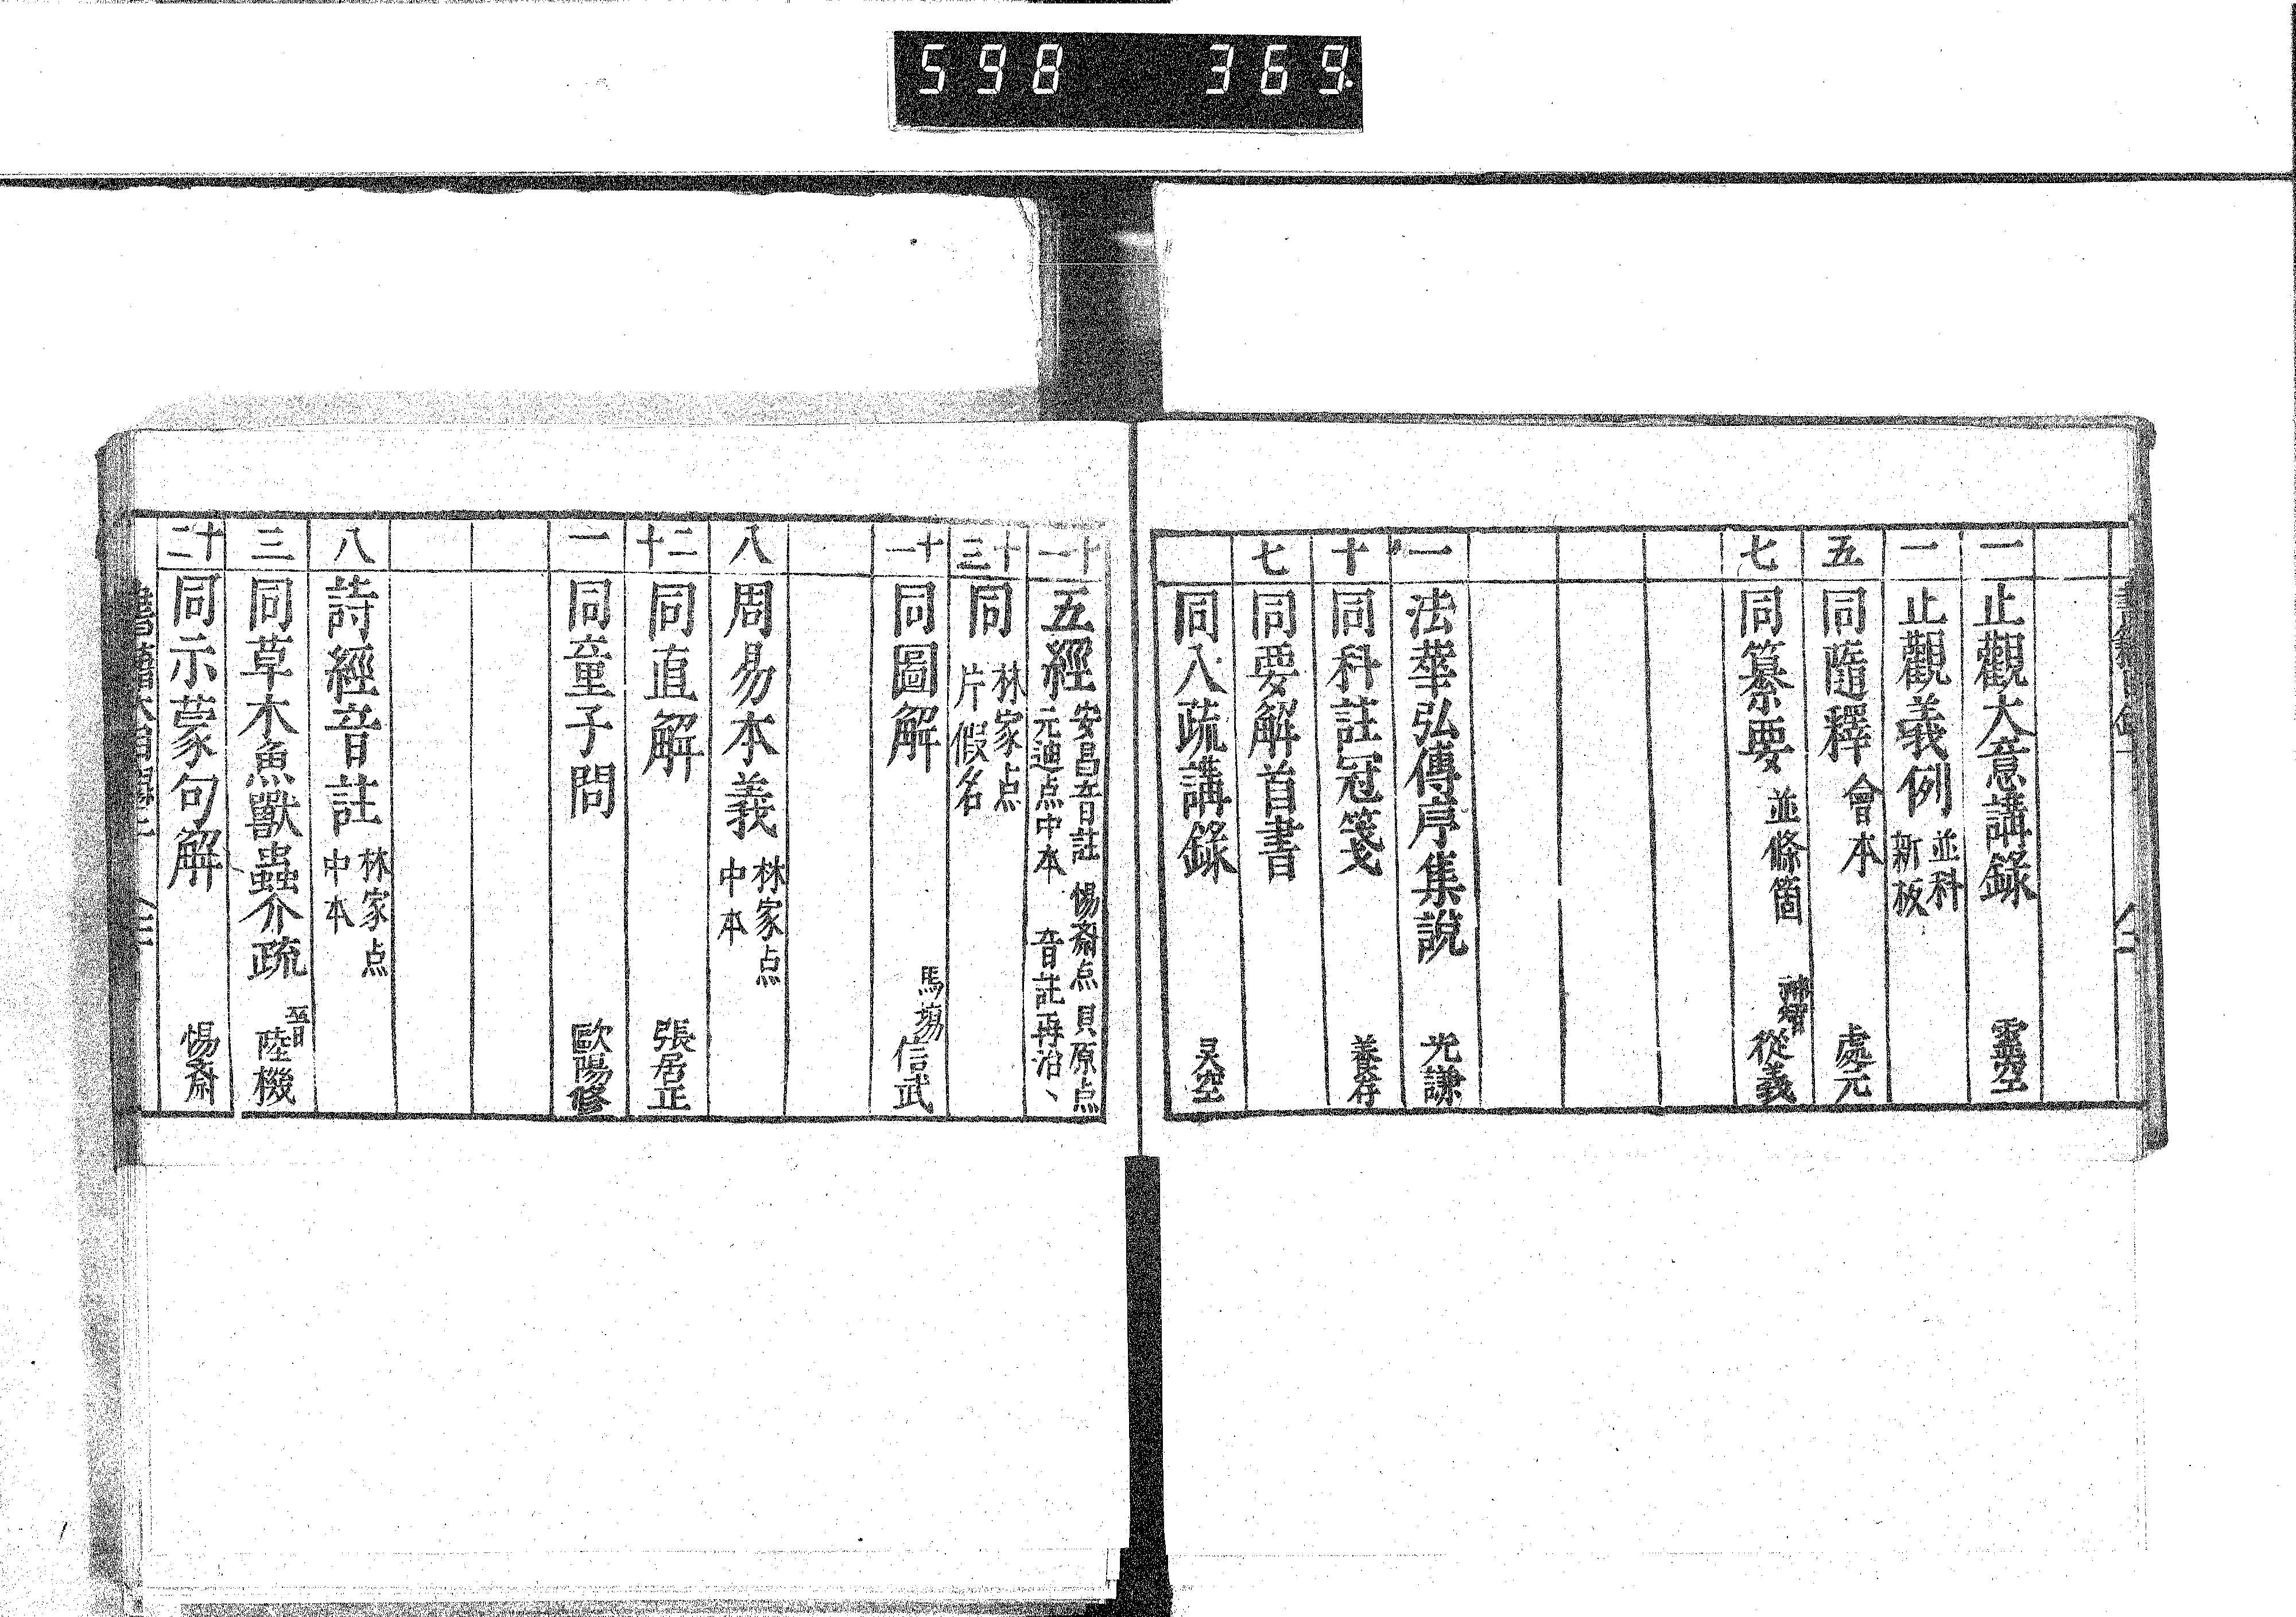 598 369.
一 止觀大意講錄 靈空
一 止觀義例 並科 新板
五 同隨釋 會本 處元
七 同纂要 並條箇 從義
一 法華弘傳序集說 光謙
十 同科註冠箋 養存
七 同要解首書
同入疏講錄 灵空
十一 五經 安昌音註 惕斎点 貝原点 元迪点中本 音註再治、
十三 同 林家点 片假名
十一 同圖解 馬塲信武
八 周易本義 林家点 中本
十二 同直解 張居正
一 同童子問 歐陽修
八 詩經音註 林家点 中本
三 同草木魚獸蟲介疏 陸機
十二 同示蒙句解 惕斎